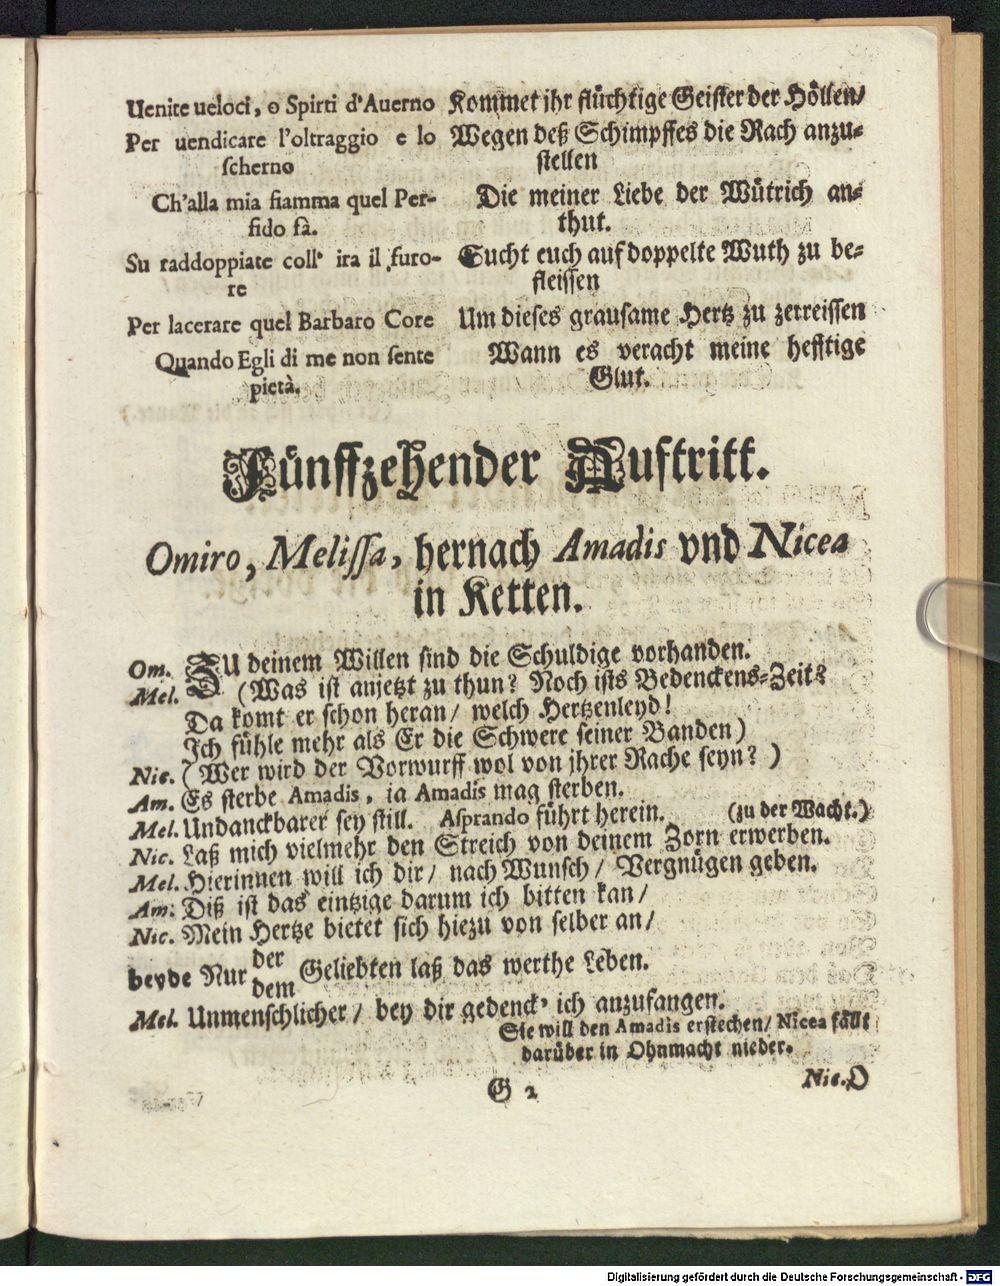 Uenite ueloci, o Spirti d'Auerno
Per uendicare l'oltraggio e lo
scherno
Ch'alla mia fiamma quel Per-
fido fà.
Su raddoppiate coll' ira il furo-
re
Per lacerare quel Barbaro Core
Quando Egli di me non sente
pietà.
Kommet ihr flüchtige Geister der Höllen/
Wegen deß Schimpffes die Rach anzu-
stellen
Die meiner Liebe der Wütrich an-
thut.
Sucht euch auf doppelte Wuth zu be-
fleissen
Um dieses grausame Hertz zu zerreissen
Wann es veracht meine hefftige
Glut.
Fünffzehender Auftritt.
Omiro, Melissa, hernach Amadis vnd Nicea
in Ketten.
Om. ZU deinem Willen sind die Schuldige vorhanden.
Mel. (Was ist anjetzt zu thun? Noch ists Bedenckens-Zeit?
Da komt er schon heran/ welch Hertzenleyd!
Ich fühle mehr als Er die Schwere seiner Banden)
Nic. (Wer wird der Vorwurff wol von ihrer Rache seyn?)
Am. Es sterbe Amadis, ia Amadis mag sterben.
Mel. Undanckbarer sey still. Asprando führt herein. (zu der Wacht.)
Nic. Laß mich vielmehr den Streich von deinem Zorn erwerben.
Mel. Hierinnen will ich dir/ nach Wunsch/ Vergnügen geben.
Am. Diß ist das eintzige darum ich bitten kan/
Nic. Mein Hertze bietet sich hiezu von selber an/
beyde Nur der
dem Geliebten laß das werthe Leben.
Mel. Unmenschlicher/ bey dir gedenck' ich anzufangen.
Sie will den Amadis erstechen/ Nicea fällt
darüber in Ohnmacht nieder.
G 2
Nic. O
Digitalisierung gefördert durch die Deutsche Forschungsgemeinschaft - DFG